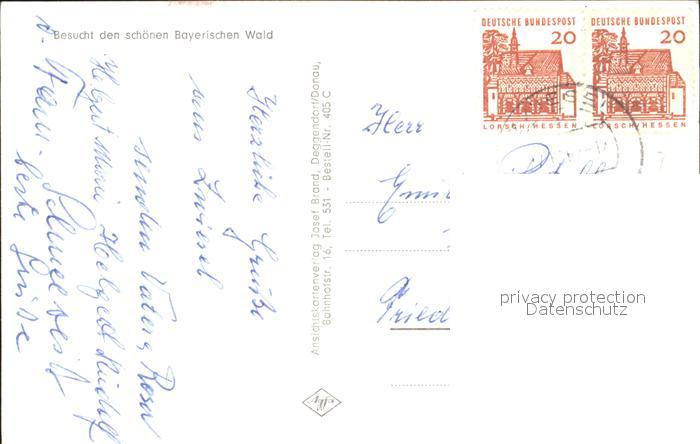 Besucht den schönen Bayerischen Wald
Herzliche Grüße
aus Zwiesel
senden Vater, Rosa
Helgard
u. Fam. Schneeweiß
beste Grüße
Ansichtskartenverlag Josef Brand, Deggendorf/Donau,
Bahnhofstr. 16, Tel. 531 - Bestell-Nr. 405 C
DEUTSCHE BUNDESPOST
20
LORSCH/HESSEN
DEUTSCHE BUNDESPOST
20
LORSCH/HESSEN
Herr
Emil
Fried
privacy protection
Datenschutz